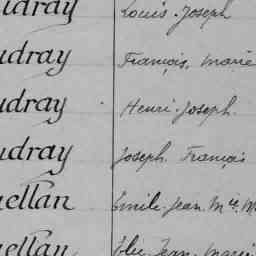 udray Louis. Joseph
udray François, Marie
udray Henri. Joseph.
udray Joseph François
ellan Emile. Jean. Mie. M
ellan Jean. Marie